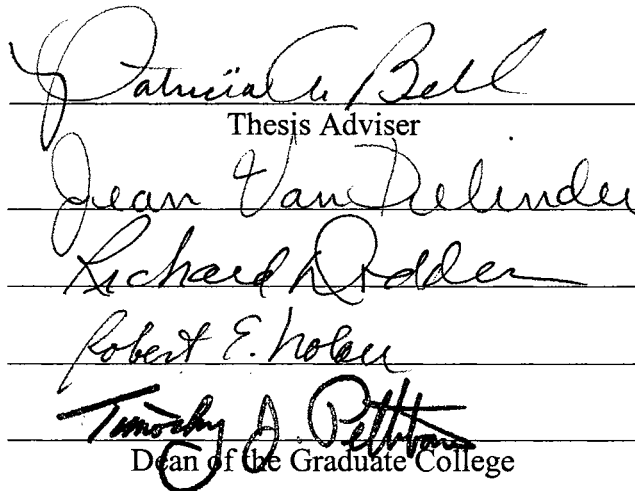 Patricia A. Bell
Thesis Adviser
Jean Van Delinder
Richard Dodder
Robert E. Nolan
Timothy J. Pettibone
Dean of the Graduate College